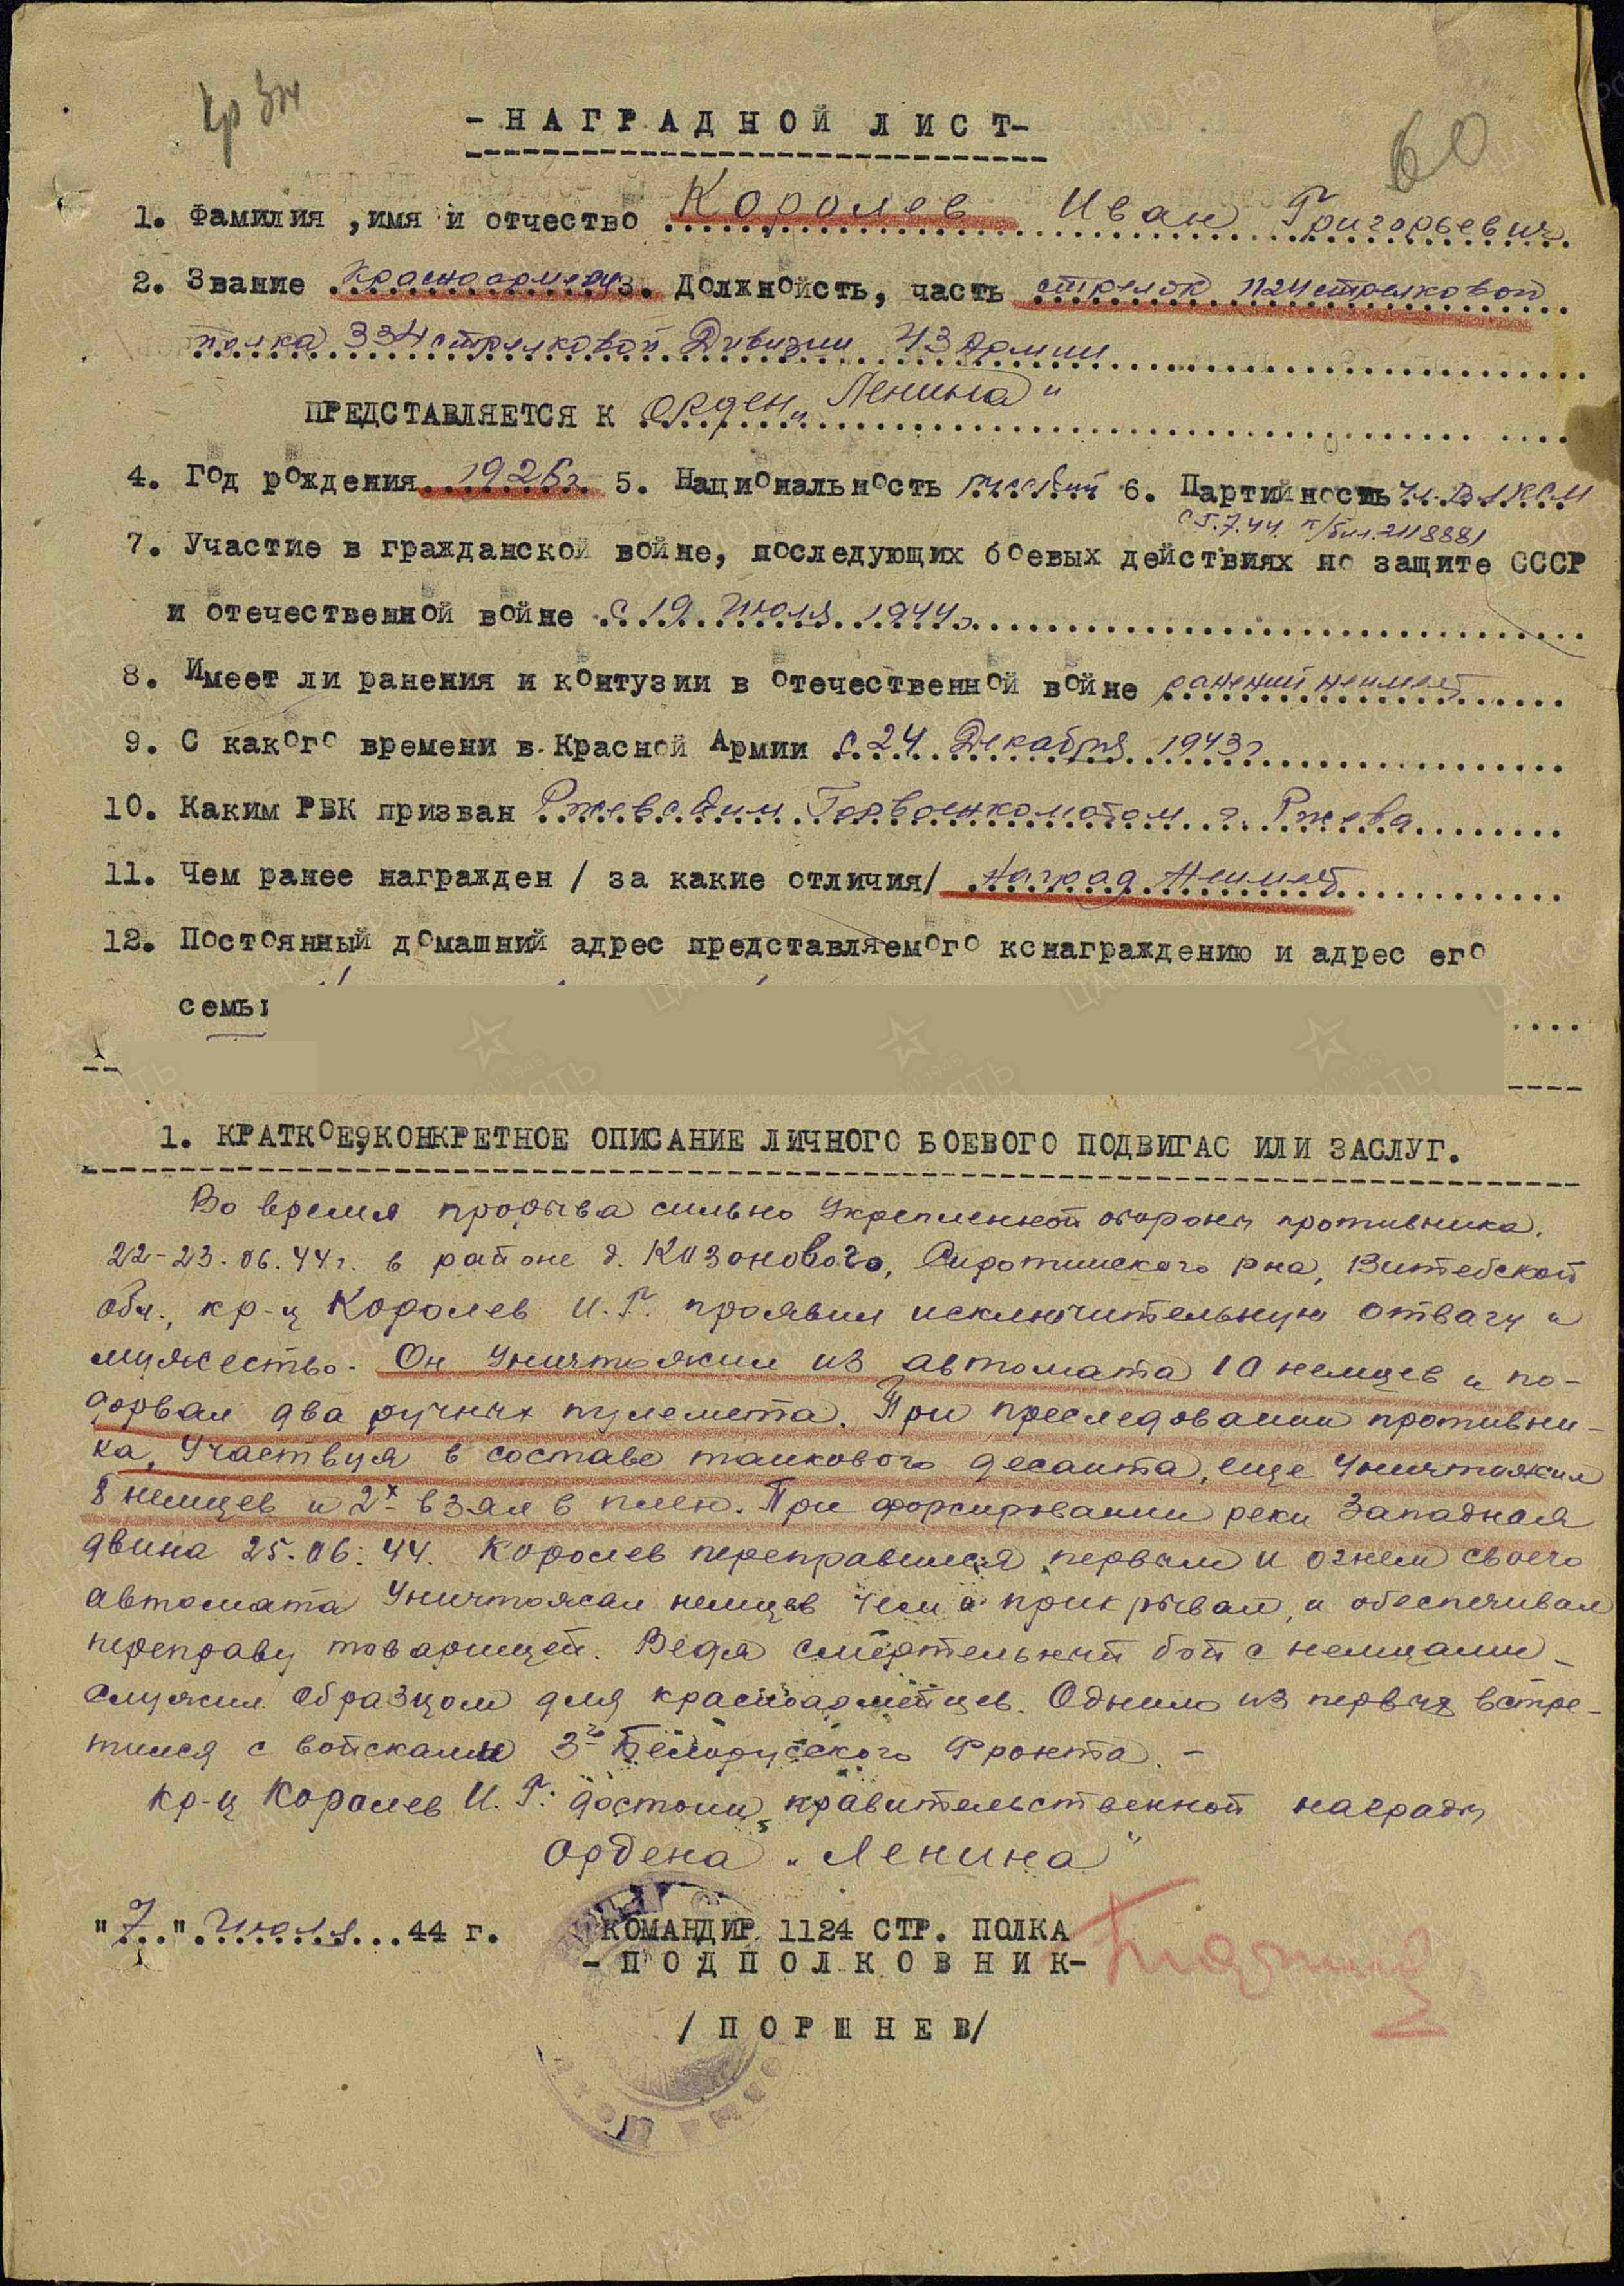 Кр Зн
60
-НАГРАДНОЙ ЛИСТ-
1. Фамилия ,имя и отчество Королев Иван Григорьевич
2. Звание Красноармеец 3. Должнойсть, часть стрелок 1124 стрелковой
полка 334 стрелковой Дивизии 43 Армии
ПРЕДСТАВЛЯЕТСЯ К Орден „Ленина"
4. Год рождения 1926г. 5. Национальность русский 6. Партийность чл. ВЛКСМ
с 5.7.44. к/бил. 2118881
7. Участие в гражданской войне, последующих боевых действиях по защите СССР
и отечественной войне с 19 Июля 1944г
8. Имеет ли ранения и контузии в отечественной войне ранений неимеет
9. С какого времени в Красной Армии с 24 Декабря 1943г
10. Каким РВК призван Ржевским Горвоенкоматом г. Ржева
11. Чем ранее награжден / за какие отличия/ Наград Неимеет
12. Постоянный домашний адрес представляемого кснаграждению и адрес его
семьи
1. КРАТКОЕ,КОНКРЕТНОЕ ОПИСАНИЕ ЛИЧНОГО БОЕВОГО ПОДВИГАС ИЛИ ЗАСЛУГ.
Во время прорыва сильно Укрепленной обороны противника,
22-23.06.44г. в районе д. Козонового, Сиротинского р-на, Витебской
обл., кр-ц Королев И. Г. проявил исключительную отвагу и
мужество. Он Уничтожил из автомата 10 немцев и по-
дорвал два ручных пулемета. При преследовании противни-
ка, Участвуя в составе танкового десанта, еще Уничтожил
8 немцев и 2х взял в плен. При форсировании реки Западная
двина 25.06.44. Королев переправился первым и огнем своего
автомата Уничтожал немцев чем и прикрывал, и обеспечивал
переправу товарищей. Ведя смертельный бой с немцами -
служил образцом для красноармейцев. Одним из первых встре-
тился с войсками 3го Белорусского Фронта. -
кр-ц Королев И. Г. достоин правительственной награды
Ордена „Ленина"
"7" Июля 44 г. КОМАНДИР 1124 СТР. ПОЛКА
-ПОДПОЛКОВНИК-
/ПОРШНЕВ/